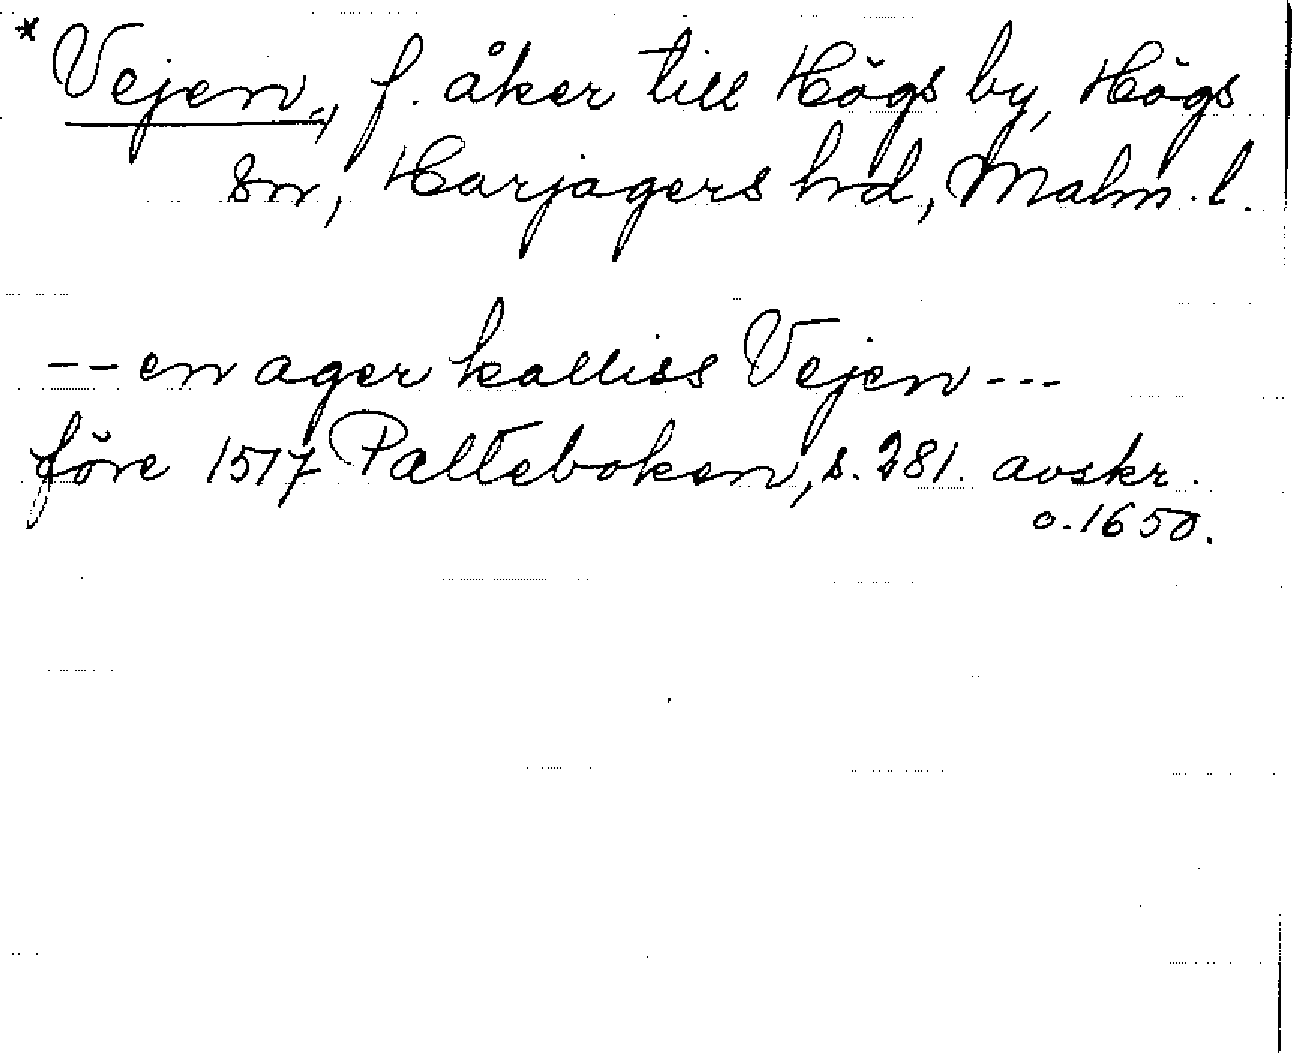 *Vejen, f. åker till Högs by, Högs
sn, Harjagers hd, Malm. l.
-- en ager kalliss Vejen ---
före 1517 Palteboken, s. 281. avskr.
o. 1650.